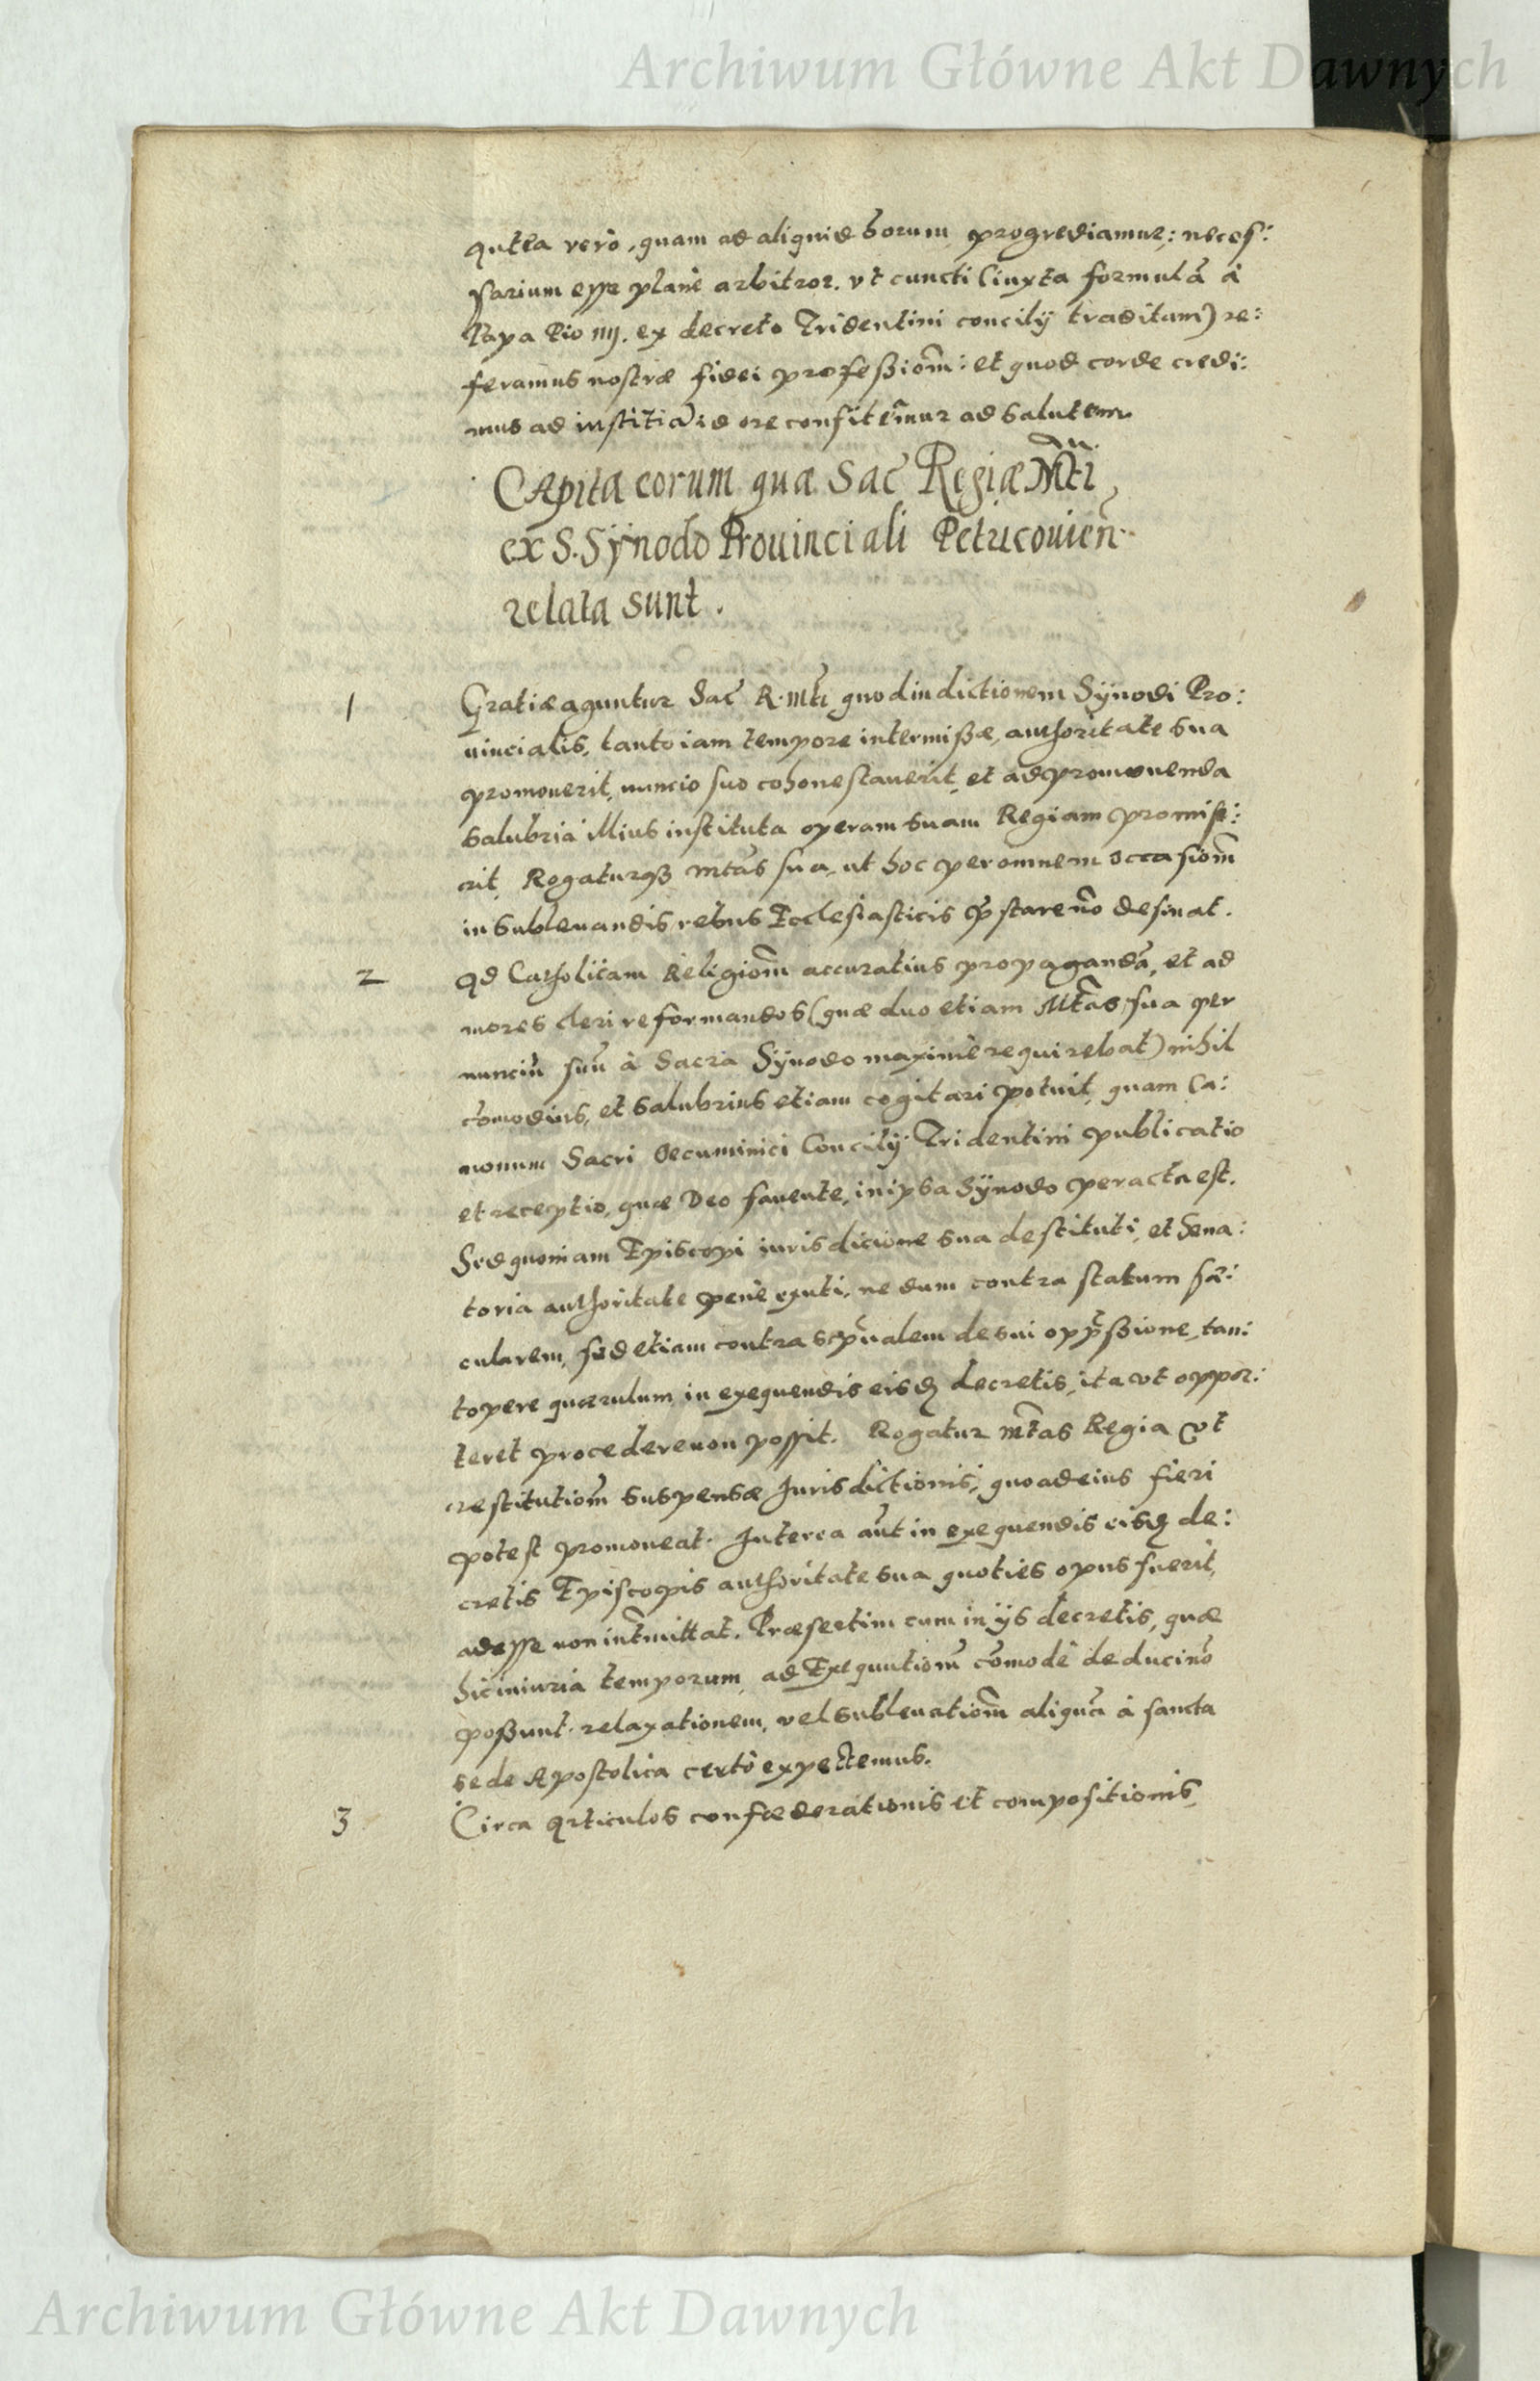 Archiwum Główne Akt Dawnych
Antea verò, quam ad aliquid horum progrediamur: neces:
sarium esse planè arbitror. vt cuncti (iuxta formulã à
Papa Pio IIII. ex decreto Tridentini concilij traditam) re:
feramus nostræ fidei profeßiom̃: et quod corde credi:
mus ad iustitiã id ore confitem̃ur ad salutem.
Capita eorum quæ Sac̃ Regiæ Mt̃i
ex S. Synodo Prouinciali Petricouien̄.
relata sunt.
1 Gratiæ aguntur Sac̃ R. Mt̃i quod indictionem Synodi Pro:
uincialis, tanto iam tempore intermißæ, authoritate sua
promouerit, nuncio suo cohonestauerit, et ad promouenda
salubria illius instituta operam suam Regiam promise:
rit, Rogaturqꝫ Mt̃as sua, ut hoc per omnem occasiom̃
in subleuandis rebus Ecclesiasticis p̃stare nõ desinat.
2 Ad Catholicam Religiom̃ accuratius propagandã, et ad
mores cleri reformandos (quæ duo etiam Mt̃as sua per
nunciũ suũ à Sacra Synodo maximè requirebat) nihil
cõmodius, et salubrius etiam cogitari potuit, quam Ca:
nonum Sacri Oecuminici Concilij Tridentini publicatio
et receptio, quæ Deo fauente, in ipsa Synodo peracta est.
Sed quoniam Episcopi iurisdicione sua destituti, et Sena:
toria authoritate penè exuti, ne dum contra statum sæ:
cularem, sed etiam contra sp̃ualem de sui opp̃ßione, tan:
topere quærulum in exequendis eisdꝫ decretis, ita vt oppor:
teret procedere non possit. Rogatur Mt̃as Regia vt
restitutiom̃ suspensæ Jurisdictionis, quoad eius fieri
potest promoueat. Interea aũt in exequendis eisdꝫ de:
cretis Episcopis authoritate sua quoties opus fuerit,
adesse non int̃mittat. Præsertim cum in ijs decretis, quæ
hic iniuria temporum, ad Exequutiom̃ cõmodè deduci nõ
poßunt. relaxationem, vel subleuatiom̃ aliquã à sancta
sede Apostolica certò expectemus.
3 Circa Articulos confæderationis et compositionis,
Archiwum Główne Akt Dawnych